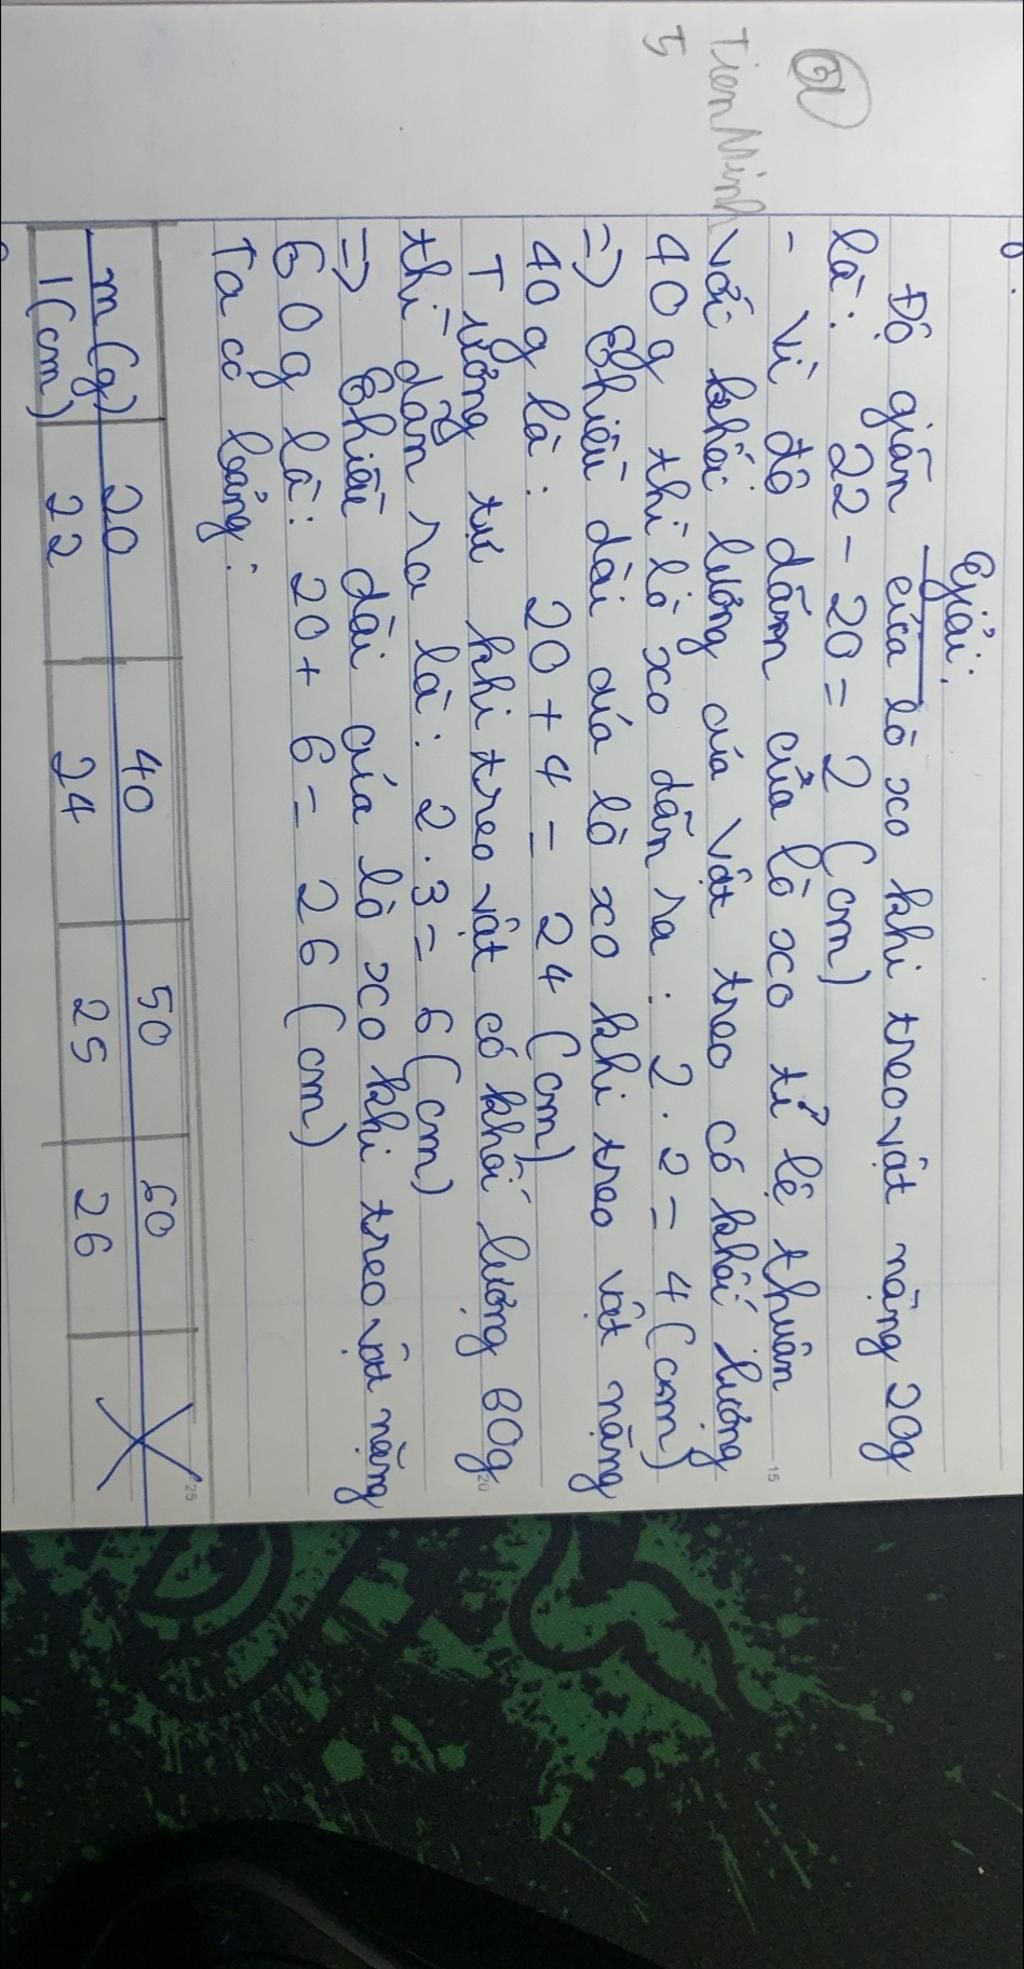 Giải:
Độ giãn của lò xo khi treo vật nặng 20g
là: 22 - 20 = 2 (cm)
- Vì độ dãm của lò xo tỉ lệ thuận
với khối lượng của vật treo có khối lượng
40g thì lò xo dãn ra: 2.2 = 4 (cm)
=> Chiều dài của lò xo khi treo vật nặng
40g là: 20 + 4 = 24 (cm)
Tương tự khi treo vật có khối lượng 60g
thì dãn ra là: 2.3 = 6 (cm)
=> Chiều dài của lò xo khi treo vật nặng
60g là: 20 + 6 = 26 (cm)
Ta có bảng:
m (g) 20 40 50 60
l (cm) 22 24 25 26
Tien Minh
5
15
20
25